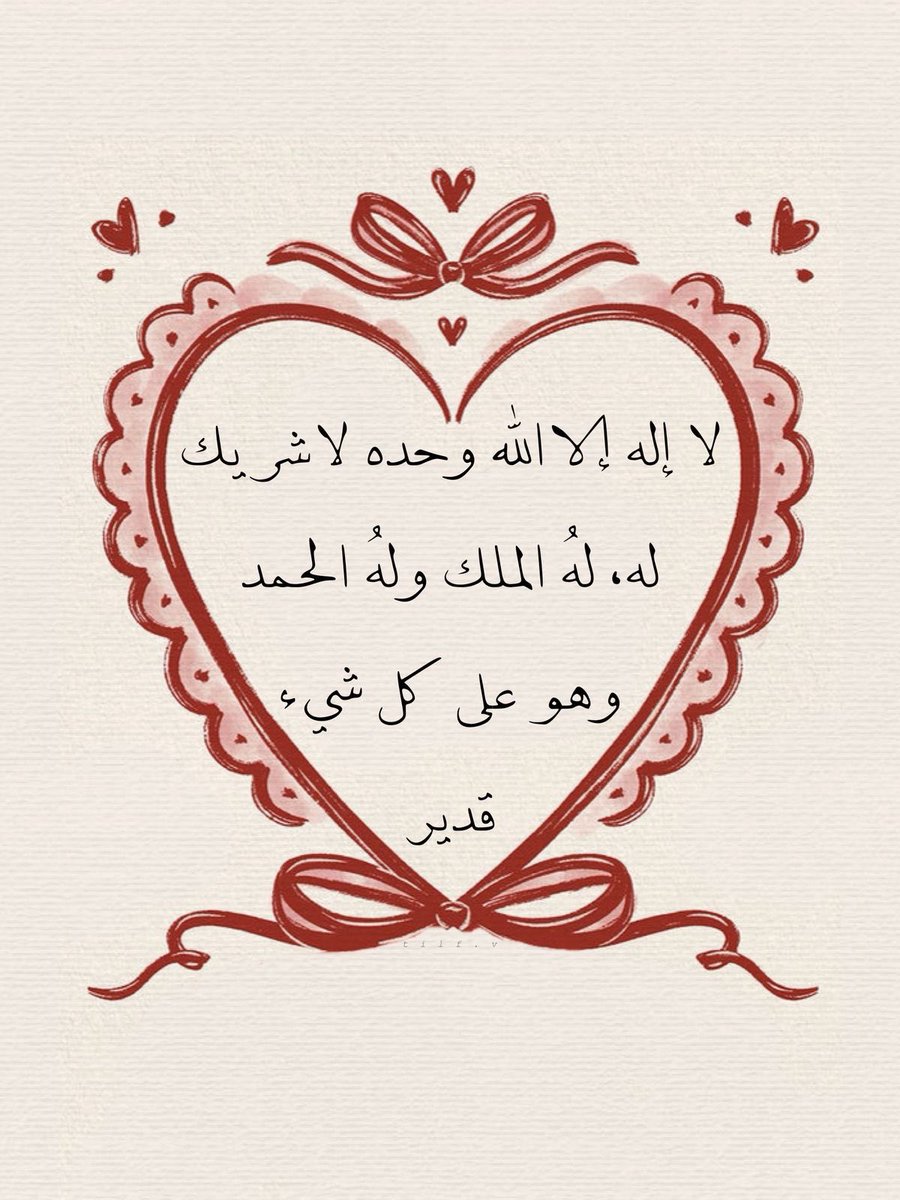 لا إله إلا الله وحده لا شريك
له، لهُ الملك ولهُ الحمد
وهو على كل شيء
قدير
tilf.v